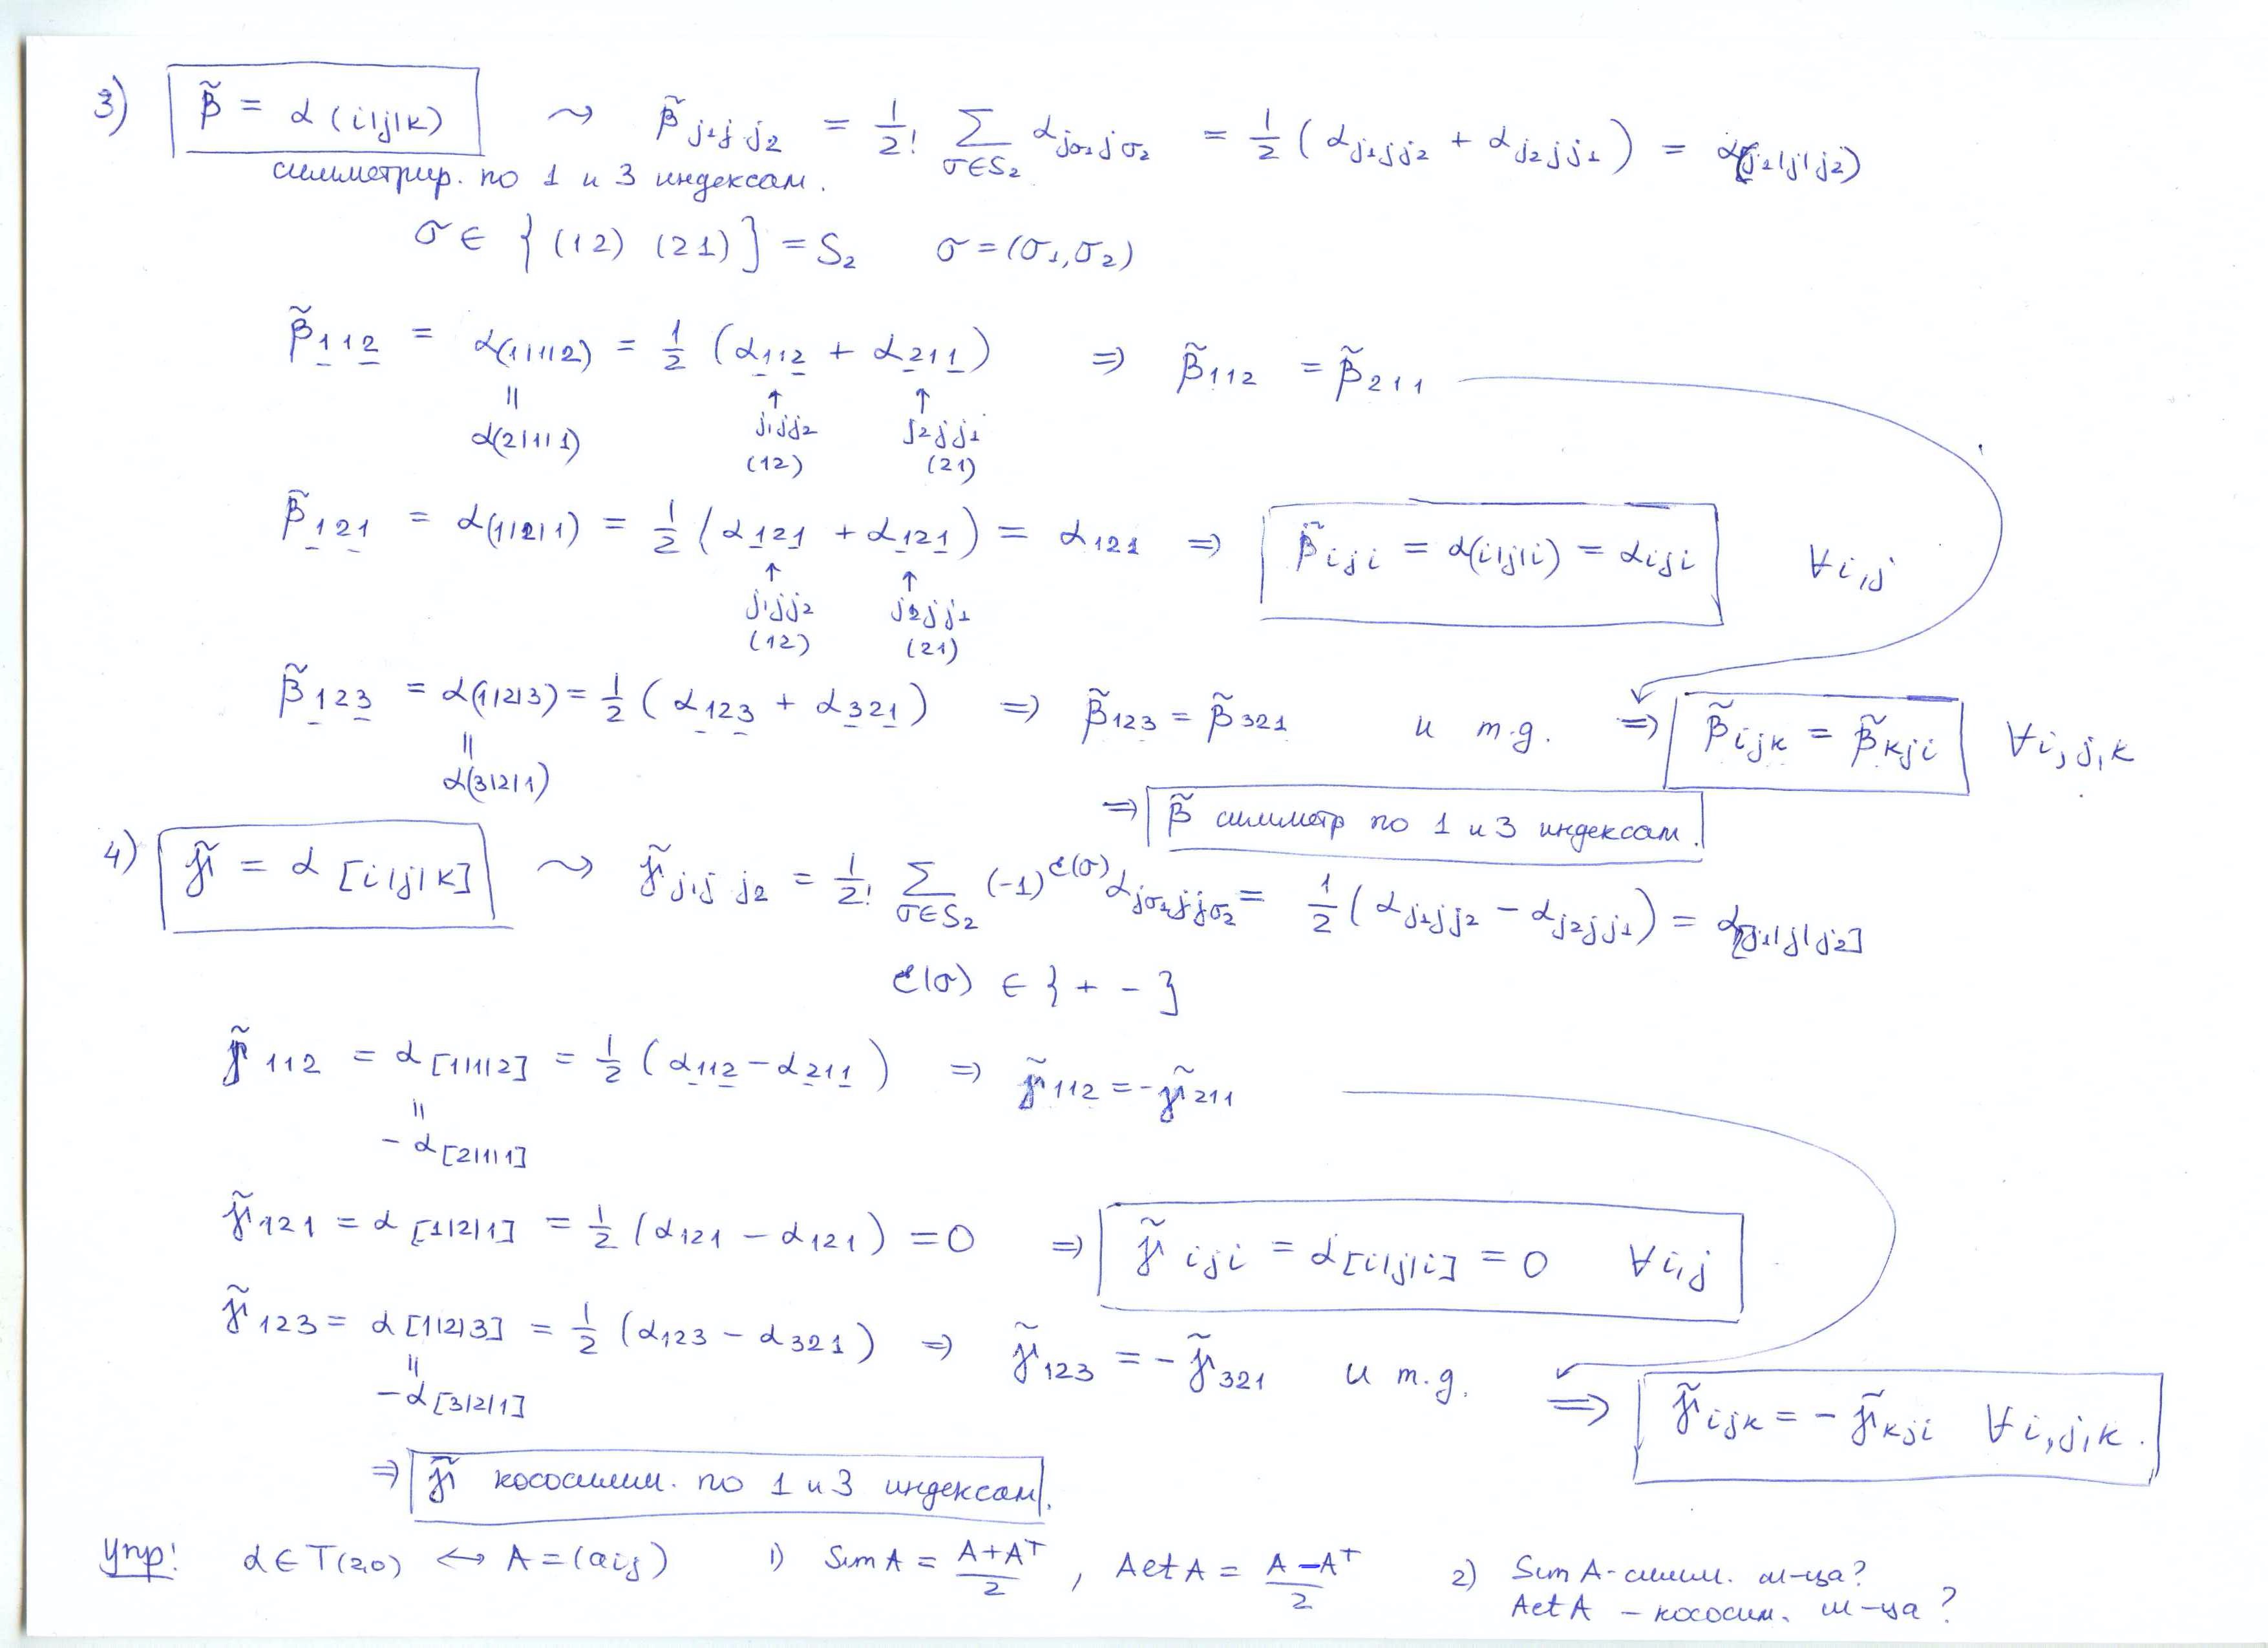 3) β̃ = α(i|j|k) ⤳ β̃ j₁j j₂ = 1/2! Σ_{σ∈S₂} α_{jσ₁jσ₂} = 1/2 (α_{j₁jj₂} + α_{j₂jj₁}) = α_{(j₁|j|j₂)}
симметрир. по 1 и 3 индексам.
σ ∈ {(12) (21)} = S₂ σ = (σ₁,σ₂)
β̃₁₁₂ = α_{(1|1|2)} = 1/2 (α₁₁₂ + α₂₁₁) ⇒ β̃₁₁₂ = β̃₂₁₁
|| ↑ ↑
α(2|1|1) j₁jj₂ j₂jj₁
(12) (21)
β̃₁₂₁ = α_{(1|2|1)} = 1/2 (α₁₂₁ + α₁₂₁) = α₁₂₁ ⇒ β̃_{iji} = α_{(i|j|i)} = α_{iji} ∀i,j
↑ ↑
j₁jj₂ j₂jj₁
(12) (21)
β̃₁₂₃ = α_{(1|2|3)} = 1/2 (α₁₂₃ + α₃₂₁) ⇒ β̃₁₂₃ = β̃₃₂₁ и т.д. ⇒ β̃_{ijk} = β̃_{kji} ∀i,j,k
||
α(3|2|1)
⇒ β̃ симметр по 1 и 3 индексам.
4) γ̃ = α [i|j|k] ⤳ γ̃ j₁j j₂ = 1/2! Σ_{σ∈S₂} (-1)^{ε(σ)} α_{jσ₁jjσ₂} = 1/2 (α_{j₁jj₂} - α_{j₂jj₁}) = α_{[j₁|j|j₂]}
ε(σ) ∈ {+ -}
γ̃₁₁₂ = α_{[1|1|2]} = 1/2 (α₁₁₂ - α₂₁₁) ⇒ γ̃₁₁₂ = -γ̃₂₁₁
||
- α_{[2|1|1]}
γ̃₁₂₁ = α_{[1|2|1]} = 1/2 (α₁₂₁ - α₁₂₁) = 0 ⇒ γ̃_{iji} = α_{[i|j|i]} = 0 ∀i,j
γ̃₁₂₃ = α_{[1|2|3]} = 1/2 (α₁₂₃ - α₃₂₁) ⇒ γ̃₁₂₃ = - γ̃₃₂₁ и т.д. ⇒ γ̃_{ijk} = - γ̃_{kji} ∀i,j,k.
||
- α_{[3|2|1]}
⇒ γ̃ кососимм. по 1 и 3 индексам.
Упр! α ∈ T(2,0) ↔ A = (aij) 1) Sim A = (A+Aᵀ)/2 , Aet A = (A-Aᵀ)/2 2) Sim A - симм. м-ца?
Aet A - кососим. м-ца?